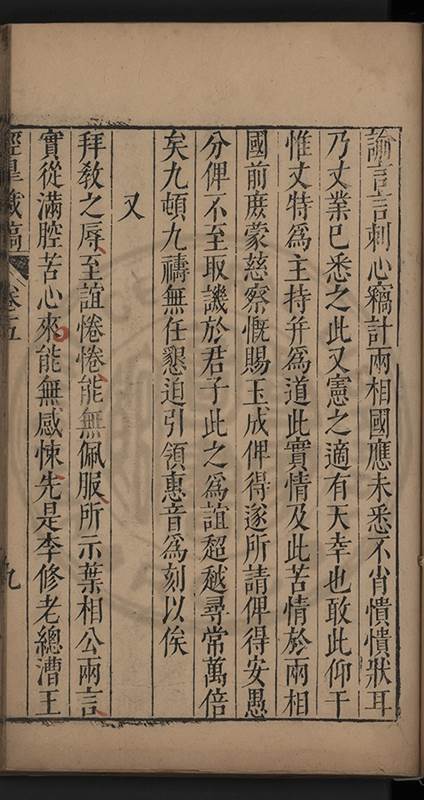 諭言言刺心竊計兩相國應未悉不肖憒憒狀耳
乃丈業已悉之此又憲之適有天幸也敢此仰干
惟丈特爲主持并爲道此實情及此苦情於兩相
國前庶蒙慈察慨賜玉成俾得遂所請俾得安愚
分俾不至取譏於君子此之爲誼超越尋常萬倍
矣九頓九禱無任懇迫引領惠音爲刻以俟
又
拜教之辱至誼惓惓能無佩服所示葉相公兩言
實從滿腔苦心來能無感悚先是李修老總漕王
涇皋藏稿
卷五
九